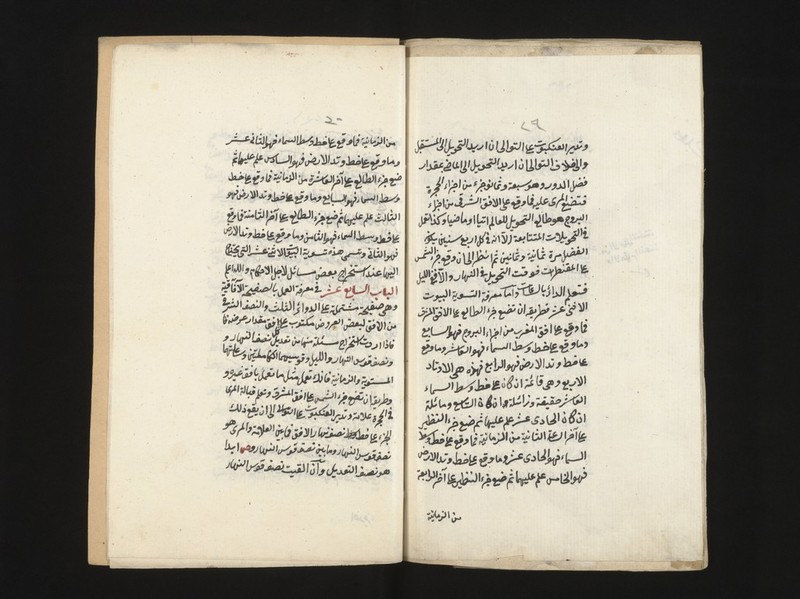 ٢٩
وتدير العنكبوت على التوالي ان اريد التحويل الى المستقبل
والى خلاف التوالي ان اريد التحويل الى الماضي بمقدار
فضل الدور وهو سبعة وثمانون جزء من اجزاء الحجرة
فتضع المرى عليه فما وقع على الافق الشرقي من اجزاء
البروج هو طالع التحويل للعام الآتي او ماضيا وكذا تعمل
في التحويلات المتتابعة الا انه في كل اربع سنين يكون
الفضل مرة ثمانية وثمانين ثم انظر الى ان وقع جزء الشمس
على المقنطرات فوقت التحويل في النهار والا ففي الليل
فتعلم الدائر بالساعات واما معرفة التسوية البيوت
الاثني عشر فطريقه ان تضع جزء الطالع على الافق المشرق
فما وقع على افق المغرب من اجزاء البروج فهو السابع
وما وقع على خط وسط السماء فهو العاشر وما وقع
على خط وتد الارض فهو الرابع فهذه هي الاوتاد
الاربع وهي قائمة ان كان على خط وسط السماء
العاشر حقيقة وزائلة ان كان التاسع ومائلة
ان كان الحادي عشر علم عليها ثم ضع جزء النظير
على آخر الساعة الثانية من الزمانية فما وقع على خط وسط
السماء فهو الحادي عشر وما وقع على خط وتد الارض
فهو الخامس علم عليهما ثم ضع جزء النظير على آخر الرابعة
من الزمانية
٣٠
من الزمانية فما وقع على خط وسط السماء فهو الثاني عشر
وما وقع على خط وتد الارض فهو السادس علم عليهما ثم
ضع جزء الطالع على آخر العاشرة من الزمانية فما وقع على خط
وسط السماء فهو التاسع وما وقع على خط وتد الارض فهو
الثالث علم عليهما ثم ضع جزء الطالع على آخر الثامنة فما وقع
على خط وسط السماء فهو الثامن وما وقع على خط وتد الارض
فهو الثاني وتسمى هذه تسوية البيوت الاثني عشر التي يحتاج
اليها عند استخراج بعض مسائل لاجل الاحكام والله اعلم
الباب السابع عشر في معرفة العمل بالصفيحة الآفاقية
وهي صفيحة مشتملة على الدوائر الثلث والنصف الشرقي
من الافق لبعض العروض مكتوب على كل افق مقدار عرضه
فاذا اردت استخراج مسئلة منها من تعديل نصف النهار و
ونصف قوس النهار والليل وقوسيهما الكاملتين وساعاتهما
المستوية والزمانية فانك تعمل مثل ما تعمل بافق غيره و
وطريقه ان تضع جزء الشمس على افق المشرق وتعلم قبالة المرى
في الحجرة علامة وتدير العنكبوت على التوالي الى ان يقع ذلك
الجزء على خط نصف نهار الافق فما بين العلامة والمرى هو
نصف قوس النهار وما بين نصف قوس النهار وص ابدا
هو نصف التعديل وان القيت نصف قوس النهار